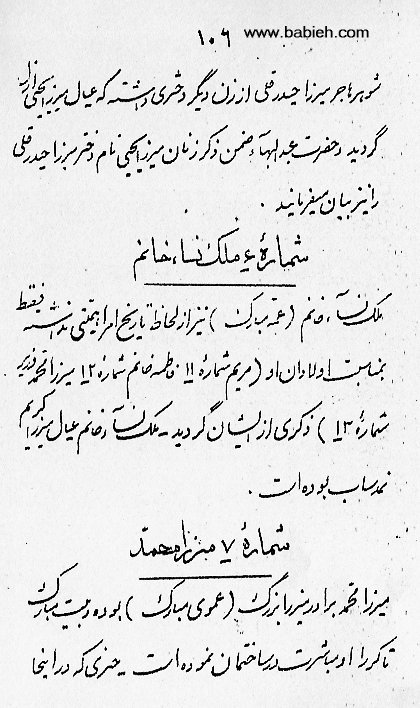 www.babieh.com
۱۰۶
شوهر هاجر میرزا حیدر قلی از زن دیگر دختری داشته که عیال میرزا یحیی ازل
گردید و حضرت عبدالبهآء ضمن ذکر زنان میرزا یحیی نام دختر میرزا حیدر قلی
را نیز بیان میفرمایند .
شمارهٔ ۶ ملک نساء خانم
ملک نسآء خانم ( عمّه مبارک ) نیز از لحاظ تاریخ امر اهمیتی نداشته فقط
بمناسبت اولادان او ( مریم شمارهٔ ۱۱ فاطمه خانم شمارهٔ ۱۲ میرزا محمد وزیر
شمارهٔ ۱۳ ) ذکری از ایشان گردید - ملک نسآء خانم عیال میرزا کریم
نمدساب بوده است .
شمارهٔ ۷ میرزا محمّد
میرزا محمد برادر میرزا بزرگ ( عموی مبارک ) بوده و بیت مبارک
تاکر را او مباشرت در ساختمان نموده است . چیزی که در اینجا